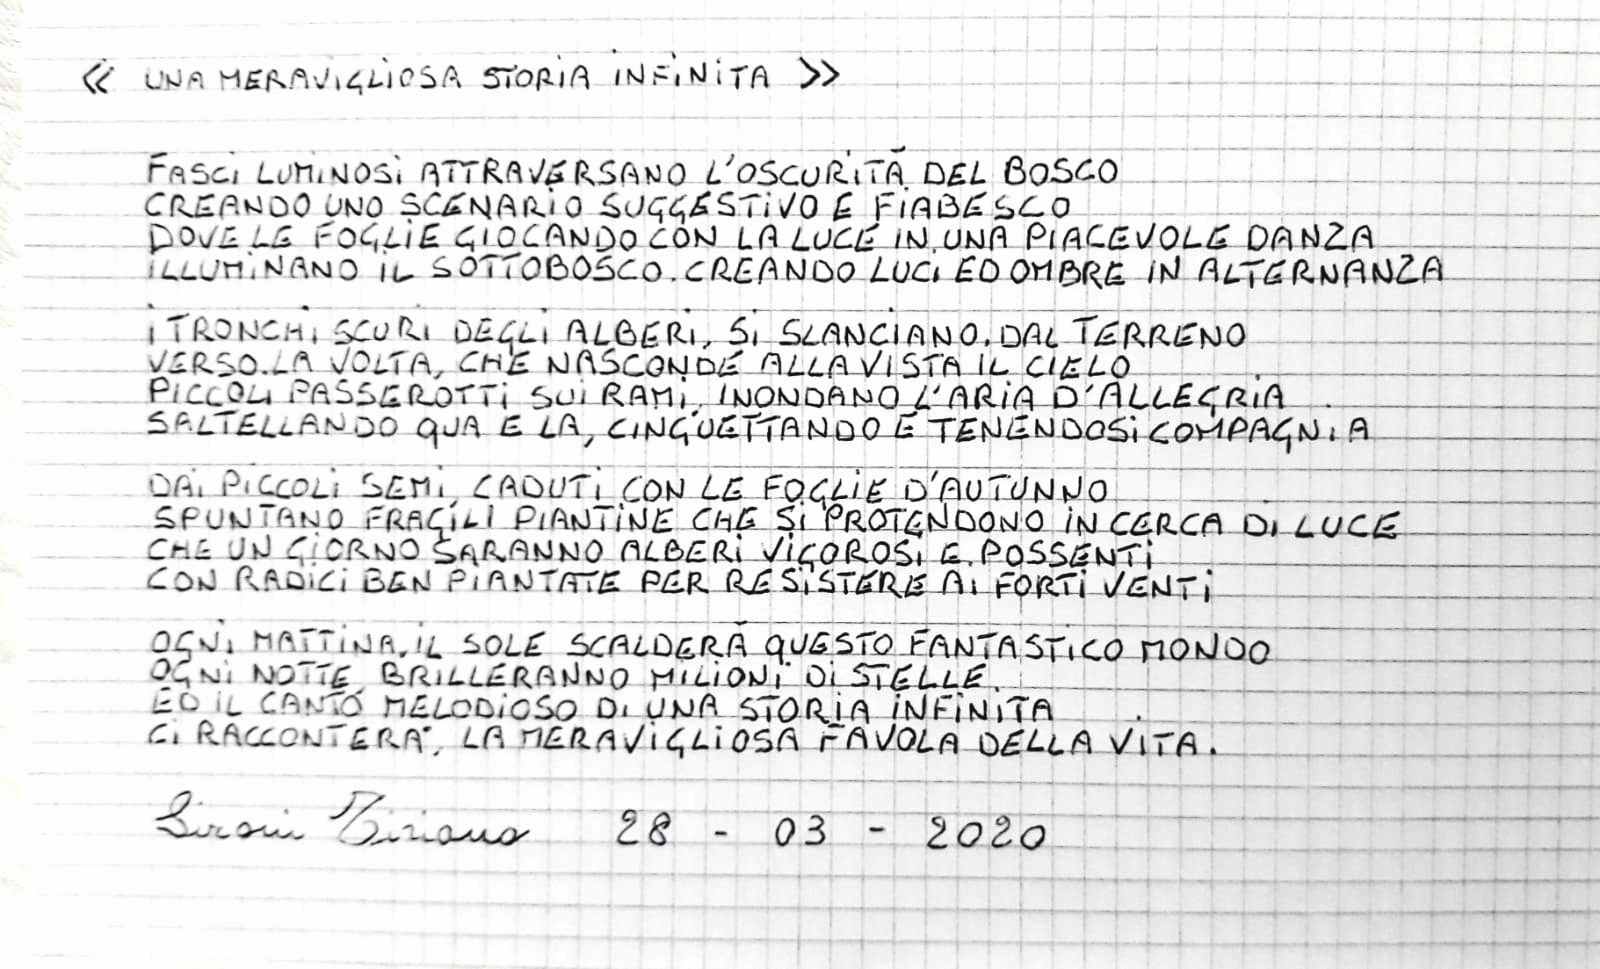 « UNA MERAVIGLIOSA STORIA INFINITA »
FASCI LUMINOSI ATTRAVERSANO L'OSCURITÀ DEL BOSCO
CREANDO UNO SCENARIO SUGGESTIVO E FIABESCO
DOVE LE FOGLIE GIOCANDO CON LA LUCE IN UNA PIACEVOLE DANZA
ILLUMINANO IL SOTTOBOSCO. CREANDO LUCI ED OMBRE IN ALTERNANZA
I TRONCHI SCURI DEGLI ALBERI, SI SLANCIANO. DAL TERRENO
VERSO. LA VOLTA, CHE NASCONDE ALLA VISTA IL CIELO
PICCOLI PASSEROTTI SUI RAMI, INONDANO L'ARIA D'ALLEGRIA
SALTELLANDO QUA E LA, CINGUETTANDO E TENENDOSI COMPAGNIA
DAI PICCOLI SEMI, CADUTI CON LE FOGLIE D'AUTUNNO
SPUNTANO FRAGILI PIANTINE CHE SI PROTENDONO IN CERCA DI LUCE
CHE UN GIORNO SARANNO ALBERI VIGOROSI E POSSENTI
CON RADICI BEN PIANTATE PER RESISTERE AI FORTI VENTI
OGNI MATTINA, IL SOLE SCALDERÀ QUESTO FANTASTICO MONDO
OGNI NOTTE BRILLERANNO MILIONI DI STELLE,
ED IL CANTO MELODIOSO DI UNA STORIA INFINITA
CI RACCONTERA', LA MERAVIGLIOSA FAVOLA DELLA VITA.
28 - 03 - 2020